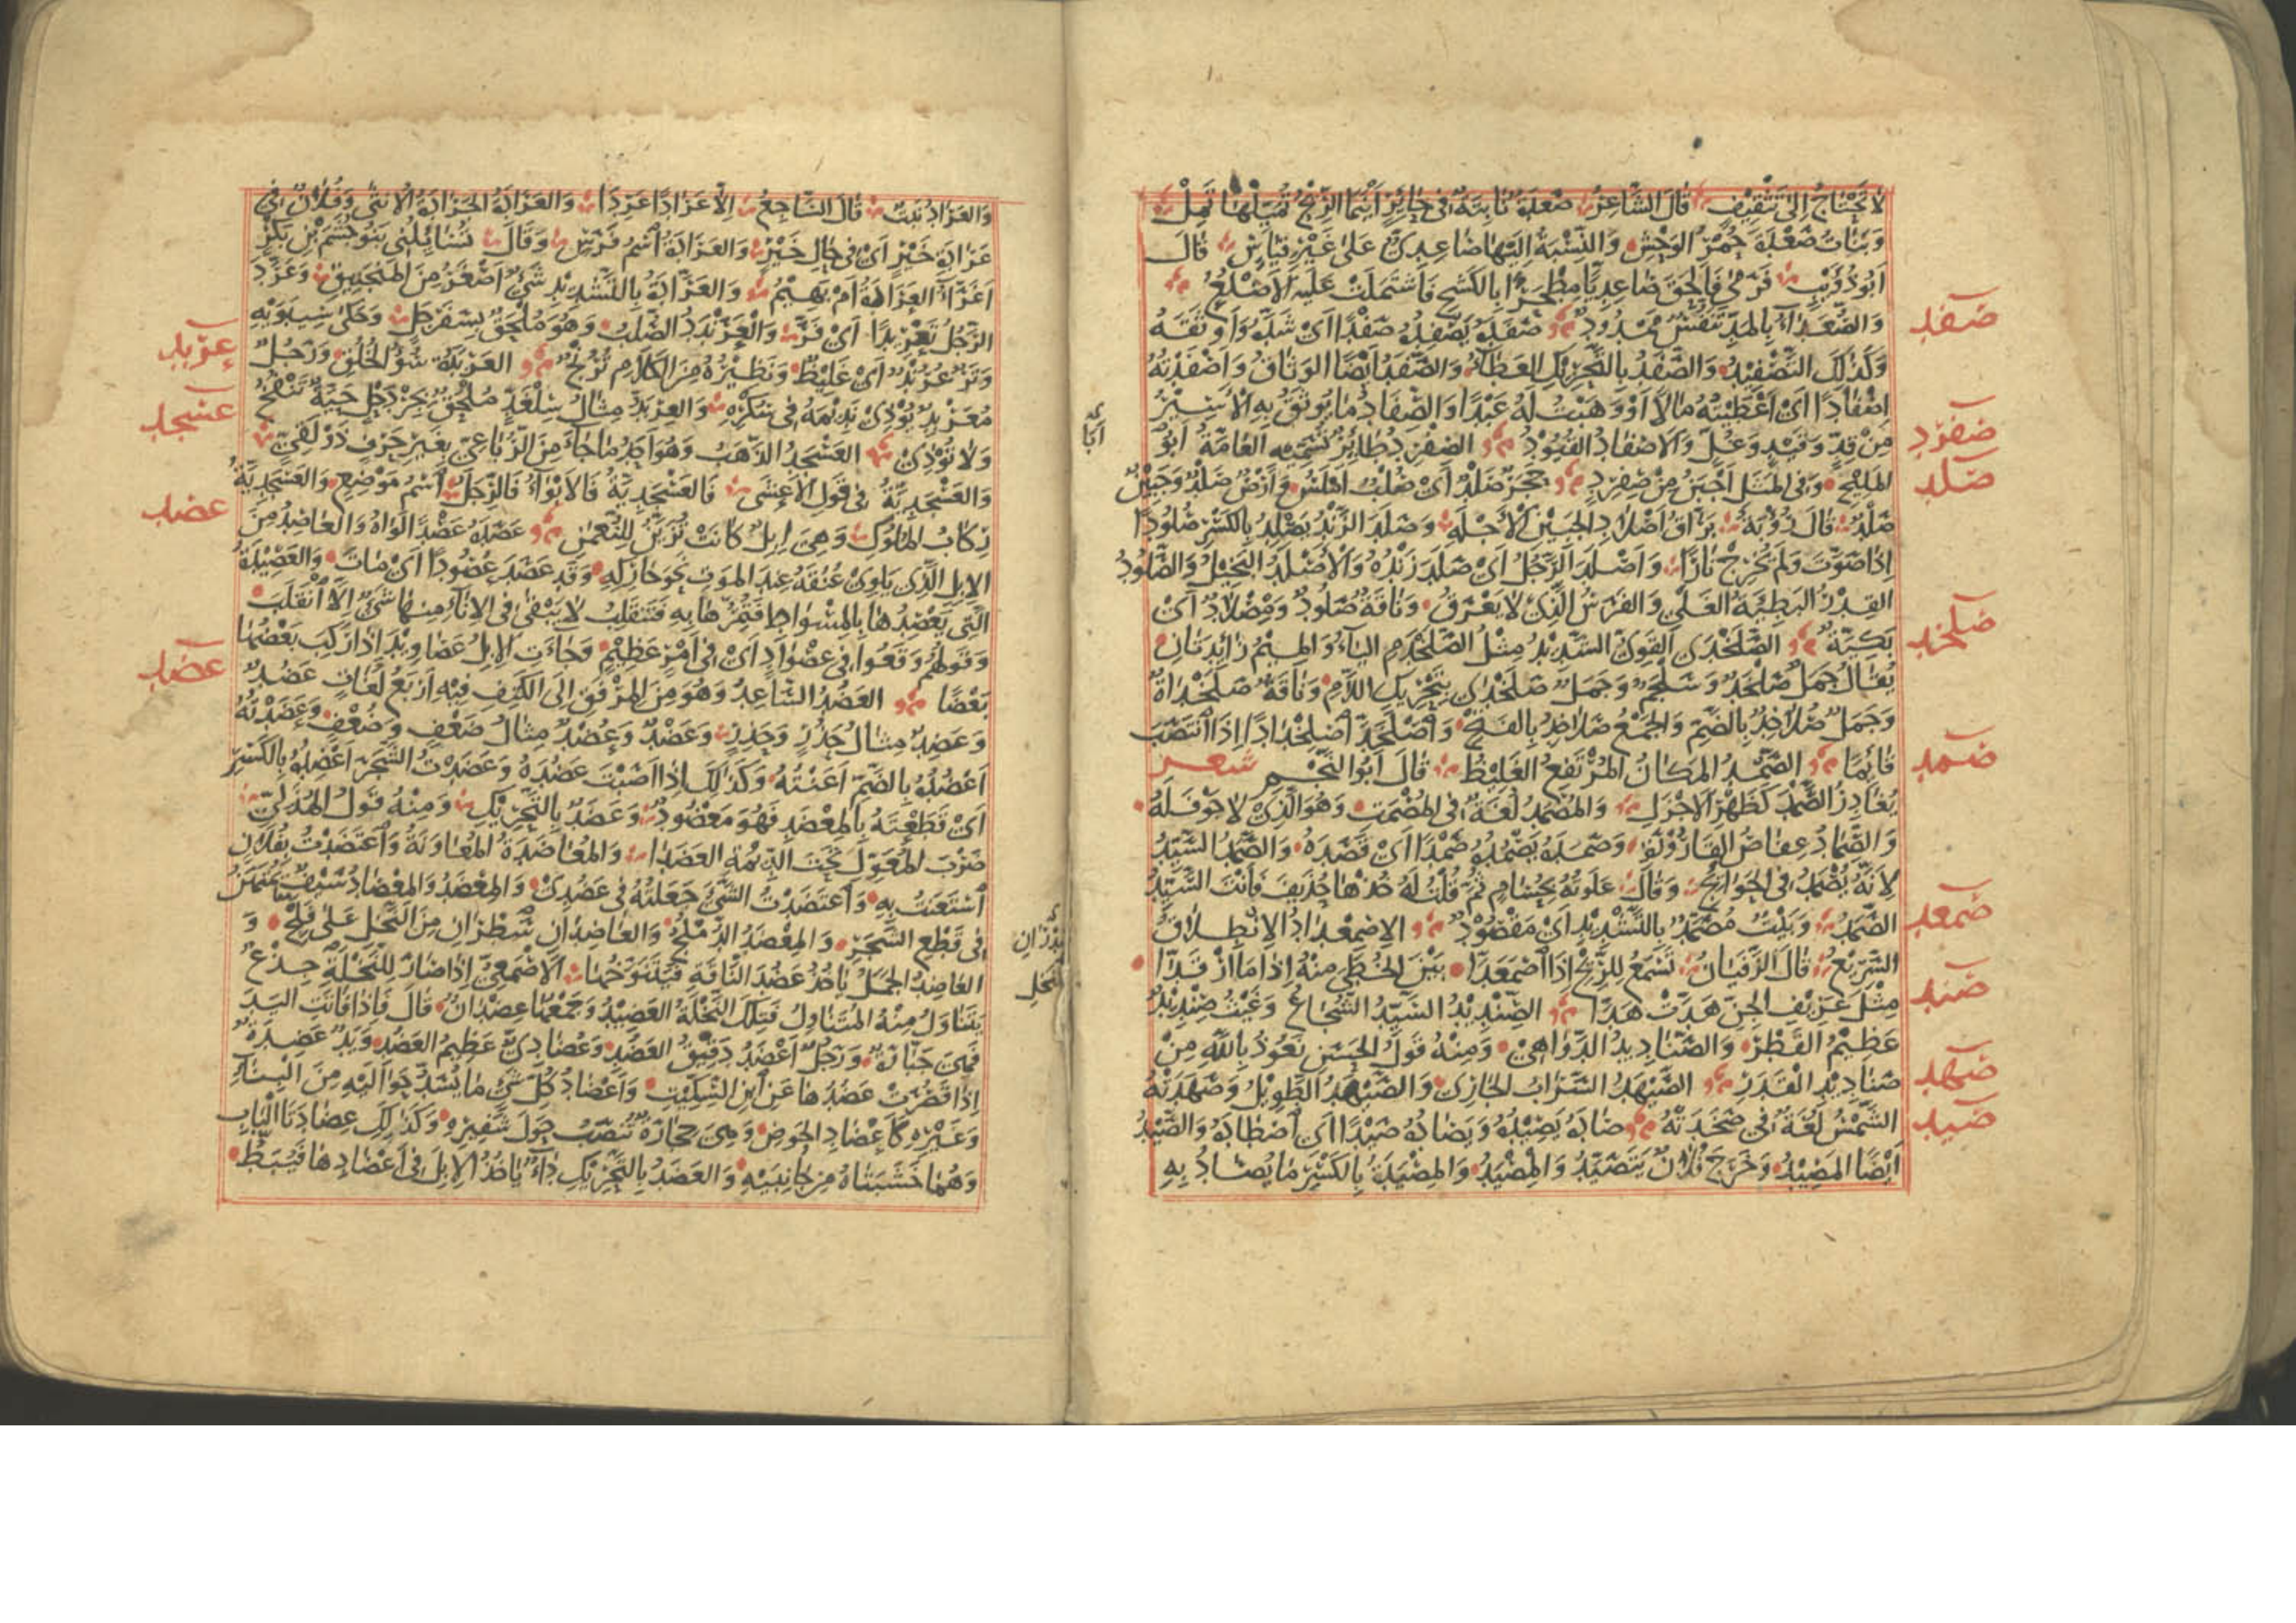 لا تحتاج إلى تثقيف قال الشاعر صعدة نابتة في حائر أينما الريح تميلها تمل
وبنات صعدة حمر الوحش والنسبة إليها صاعدي على غير قياس قال
أبو ذؤيب فرمى فألحق صاعديا مطحرا بالكشح فاشتملت عليه الأضلع
والصعداء بالمد تنفس ممدود صفده يصفده صفدا أي شده وأوثقه
صفد
وكذلك التصفيد والصفد بالتحريك العطاء والصفد أيضا الوثاق وأصفدته
إصفادا أي أعطيته مالا أو وهبت له عبدا والصفاد ما يوثق به الأسير
من قد وقيد وغل والأصفاد القيود الصفرد طائر تسميه العامة أبو
صفرد
المليح وفي المثل أجبن من صفرد حجر صلد أي صلب أملس وأرض صلد وجبين
صلد
صلد قال رؤبة براق أصلاد الجبين الأجله وصلد الزند يصلد بالكسر صلودا
إذا صوت ولم يخرج نارا وأصلد الرجل أي صلد زنده والأصلد البخيل والصلود
القدر البطيئة الغلي والفرس الذي لا يعرق وناقة صلود ومصلاد أي
بكيئة الصلخدى القوي الشديد مثل الصلخدم الياء والميم زايدتان
صلخد
يقال جمل صلخد وسلجم وجمل صلخدى بتحريك اللام وناقة صلخداة
وجمل صلاخد بالضم والجمع صلاخد بالفتح واصلخد اصلخدادا إذا انتصب
قائما الصمد المكان المرتفع الغليظ قال أبو النجم شعر
صمد
يغادر الصمد كظهر الأجزل والمصمد لغة في المصمت وهو الذي لا جوف له
والصماد عفاص القارورة وصمده يصمده صمدا أي قصده والصمد السيد
لأنه يصمد في الحوائج وقال علوته بحسام ثم قلت له خذها حذيف فأنت السيد
الصمد وبيت مصمد بالتشديد أي مقصود الاصمعداد الانطلاق
صمعد
السريع قال الزفيان تسمع للريح إذا اصمعدا بين الخطى منه إذا ما ارقدا
مثل عزيف الجن هدت هدا الصنديد السيد الشجاع وغيث صنديد
صند
عظيم القطر والصناديد الدواهي ومنه قول الحسن نعوذ بالله من
صناديد القدر الصيهد السراب الجاري والصيهد الطويل وصهدته
صهد
الشمس لغة في صخدته صاده يصيده ويصاده صيدا أي اصطاده والصيد
صيد
أيضا المصيد وخرج فلان يتصيد والمصيد والمصيدة بالكسر ما يصاد به
والعراد نبت قال الساجع إلا عرادا عردا والعرادة الجرادة الأنثى وفلان في
عرادة خير أي في حال خير والعرادة اسم فرس وقال تسائلني بنو جشم بن بكر
أغراء العرادة أم بهيم والعرادة بالتشديد شيء أصغر من المنجنيق وعرد
الرجل تعريدا أي فر والعرندد الصلب وهو ملحق بسفرجل وحكى سيبويه
وتر عرند أي غليظ ونظيره من الكلام ترنج العربدة سوء الخلق ورجل
عربد
معربد يؤذي نديمه في سكره والعربد مثال سلغد ملحق بجردحل حية تنفخ
ولا تؤذي العسجد الذهب وهو أحد ما جاء من الرباعي بغير حرف ذولقي
عسجد
والعسجدية في قول الأعشى فالعسجدية فالأبواء فالرجل اسم موضع والعسجدية
ركاب الملوك وهي إبل كانت تزين للنعمن عصده عصدا لواه والعاصد من
عصد
الإبل الذي يلوي عنقه عند الموت نحو حاركه وقد عصد عصودا أي مات والعصيدة
التي يعصدها بالمسواط فتمرها به فتنقلب لا يبقى في الإناء منها شيء إلا انقلب
وقولهم وقعوا في عصواد أي في أمر عظيم وجاءت الإبل عصاويد إذا ركب بعضها
بعضا العضد الساعد وهو من المرفق إلى الكتف فيه أربع لغات عضد
عضد
وعضد مثال حذر وحذر وعضد وعضد مثال ضعف وضعف وعضدته
أعضده بالضم أعنته وكذلك إذا أصبت عضده وعضدت الشجر أعضده بالكسر
أي قطعته بالمعضد فهو معضود وعضد بالتحريك ومنه قول الهذلي
ضرب المعول تحت الديمة العضدا والمعاضدة المعاونة واعتضدت بفلان
استعنت به واعتضدت الشيء جعلته في عضدي والمعضد والمعضاد سيف يمتهن
في قطع الشجر والمعضد الدملج والعاضدان سطران من النخل على فلج و
العاضد الجمل يأخذ عضد الناقة فيتنوخها الأصمعي إذا صار للنخلة جذع
يتناول منه المتناول فتلك النخلة العضيد وجمعها عضدان قال فإذا فاتت اليد
فهي جبارة ورجل أعضد دقيق العضد وعضادي عظيم العضد ويد عضدة
إذا قصرت عضدها عن ابن السكيت وأعضاد كل شيء ما يشد حواليه من البناء
وغيره كأعضاد الحوض وهي حجارة تنصب حول شفيره وكذلك عضادتا الباب
وهما خشبتاه من جانبيه والعضد بالتحريك داء يأخذ الإبل في أعضادها فيبط